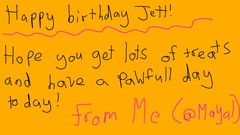 Happy birthday Jett!
Hope you get lots of treats
and have a pawfull day
today!
From Me (@Maya)